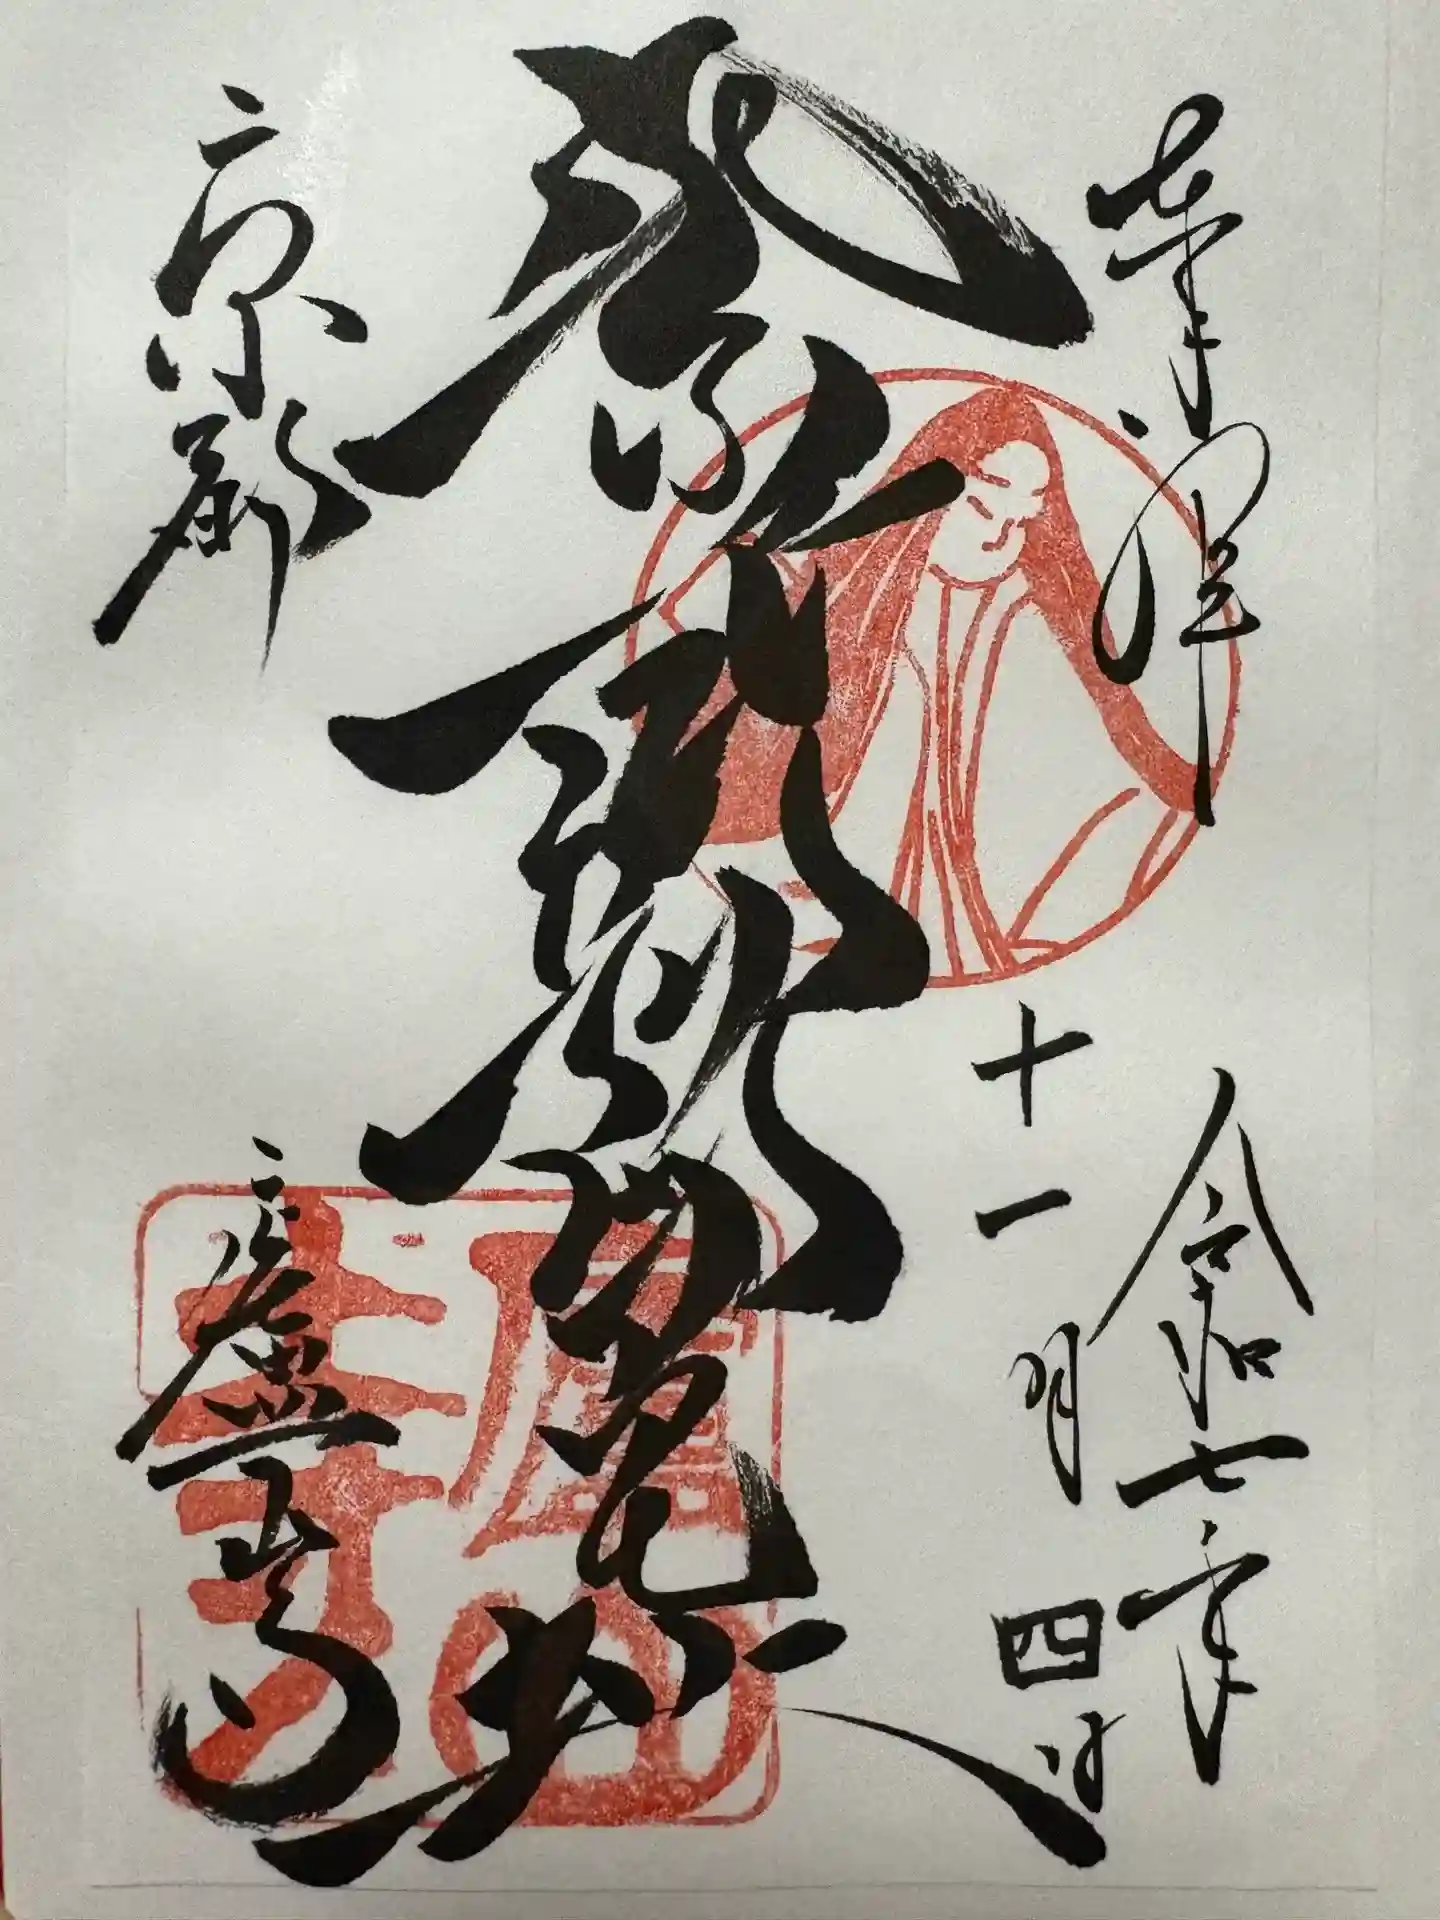 奉拝
令和七年
十一月四日
紫式部邸宅址
京都
廬山寺
廬山寺